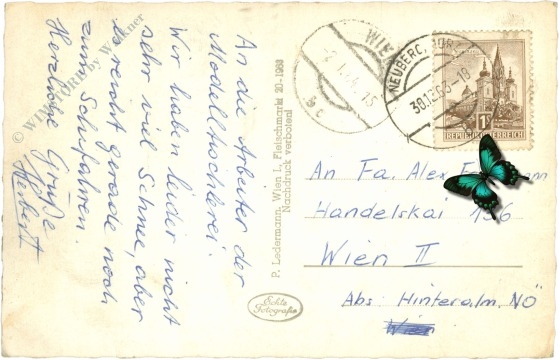 An die Arbeiter der
Modelltischlerei.
Wir haben leider nicht
sehr viel Schnee, aber
es reicht gerade noch
zum Schifahren.
Herzliche Grüße
Herbert
© WINSTORE by W.
P. Ledermann, Wien I., Fleischmarkt 20 - 1963
Nachdruck verboten!
Echte
Fotografie
WIEN
NEUBERG
30.12.63-18
1S
REPUBLIK ÖSTERREICH
An Fa. Alex
Handelskai 196
Wien II
Abs: Hinteralm. NÖ
Wien